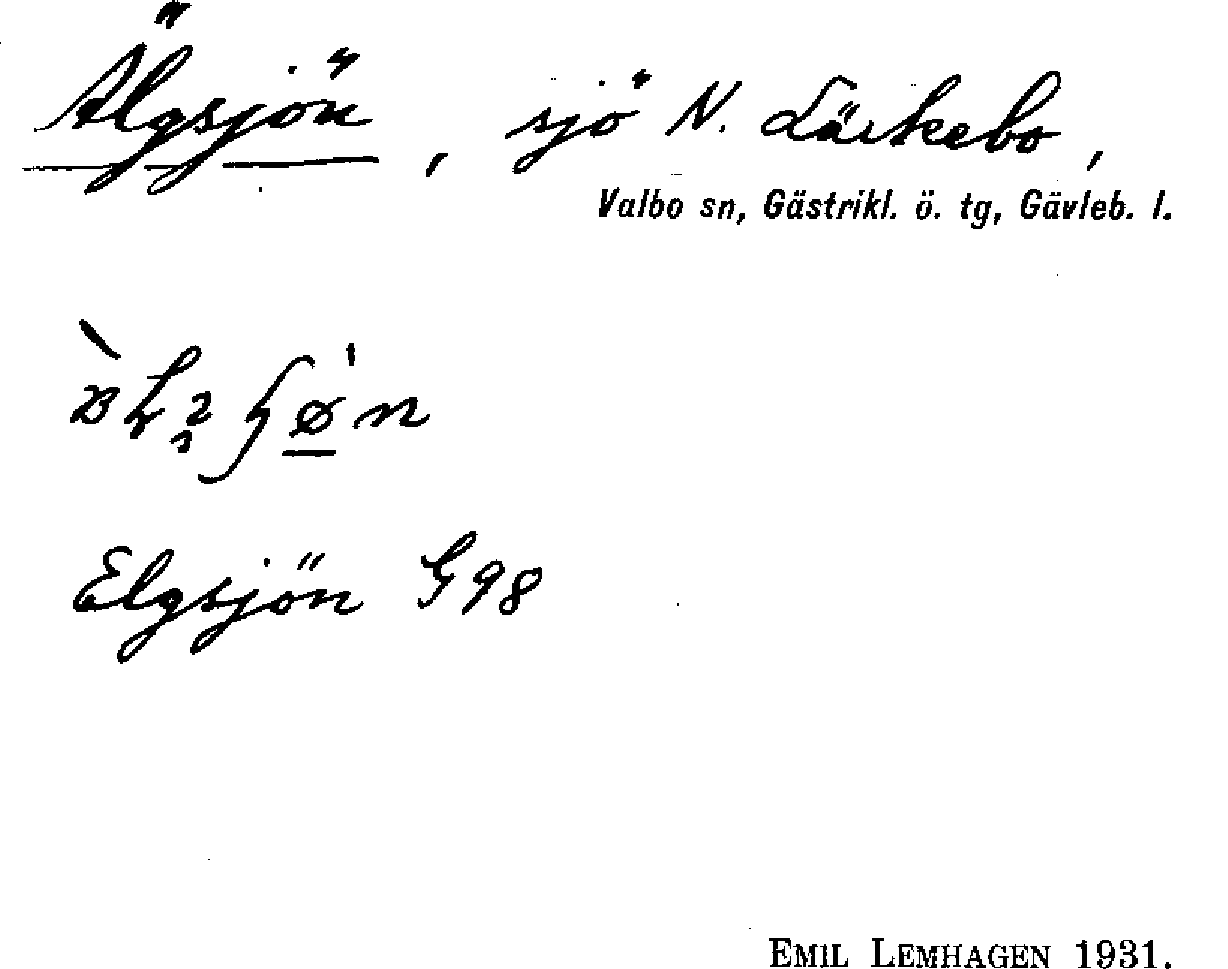 Älgsjön, sjö N. Lärkebo,
Valbo sn, Gästrikl. ö. tg, Gävleb. l.
Elgsjön G98
EMIL LEMHAGEN 1931.